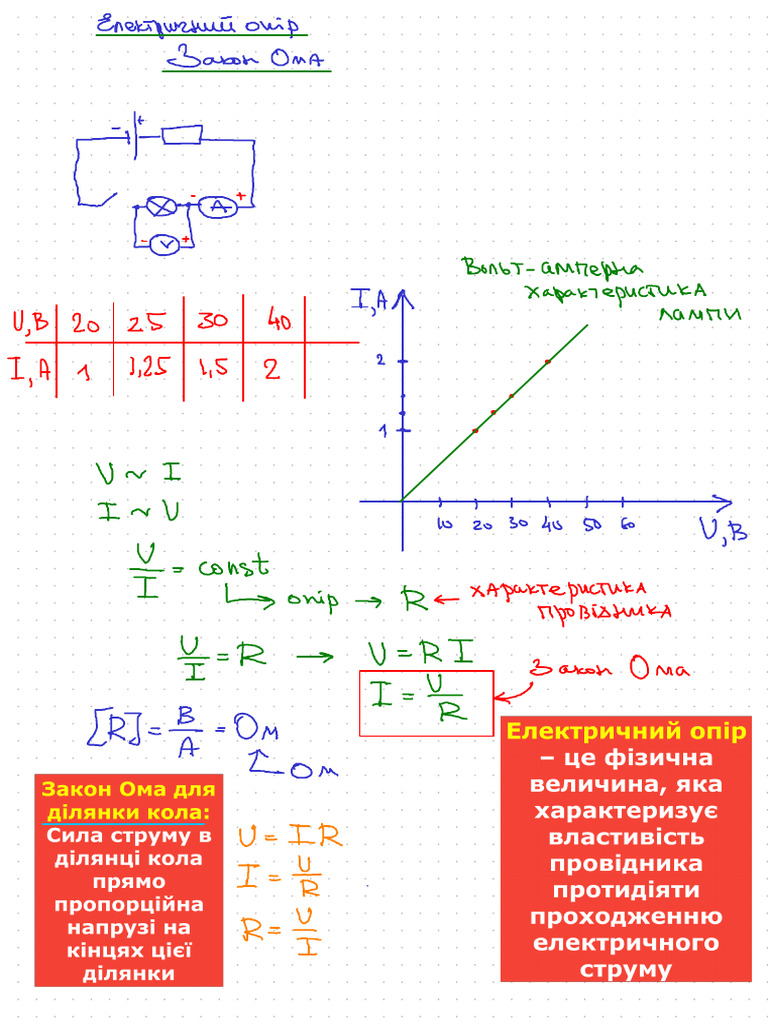 Електричний опір
Закон Ома
- +
- +
A
- V +
U,В 20 25 30 40
I,А 1 1,25 1,5 2
Вольт-амперна
характеристика
лампи
I,А
2
1
10 20 30 40 50 60
U,В
U ~ I
I ~ U
U/I = const
опір → R ← характеристика
провідника
U/I = R → U = R I
I = U/R
Закон Ома
[R] = В/А = Ом
Ом
Електричний опір
– це фізична
величина, яка
характеризує
властивість
провідника
протидіяти
проходженню
електричного
струму
Закон Ома для
ділянки кола:
Сила струму в
ділянці кола
прямо
пропорційна
напрузі на
кінцях цієї
ділянки
U = I R
I = U/R
R = U/I